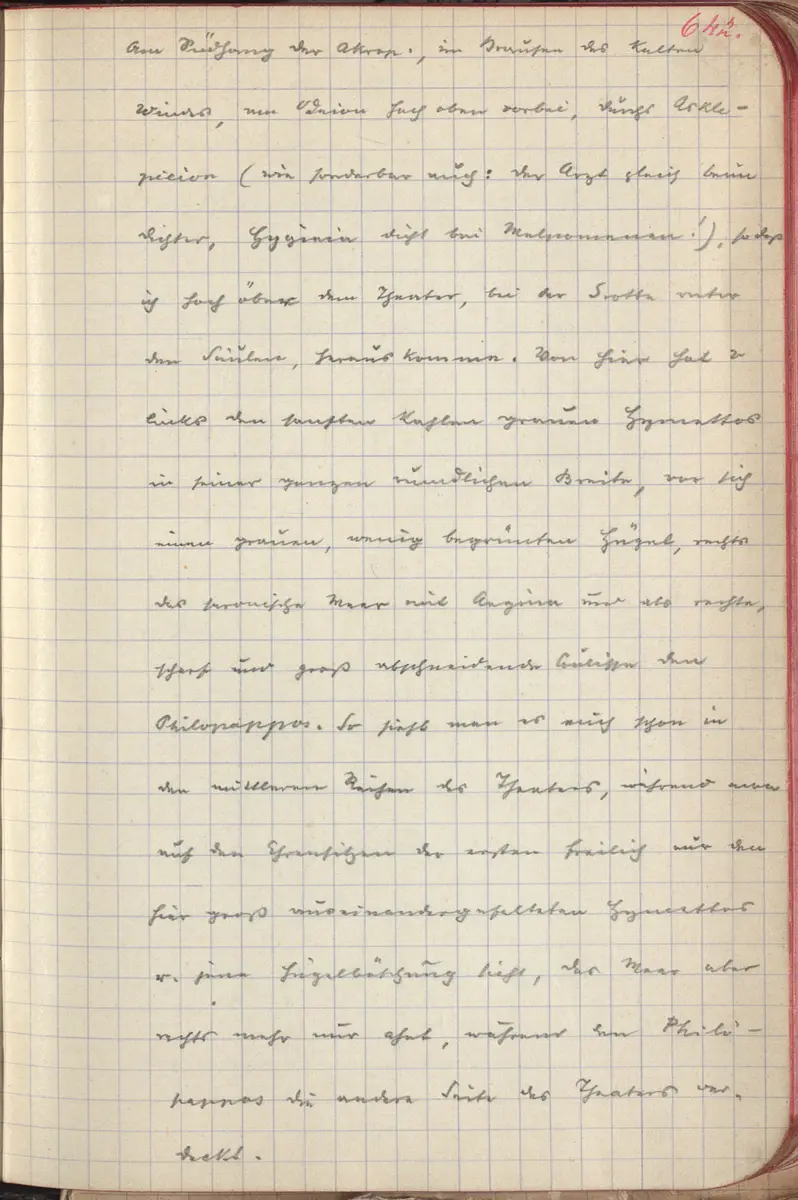 642.
Am Südhang der Akrop., im Brausen des kalten
Windes, am Odeion hoch oben vorbei, durchs Askle-
pieion (wie sonderbar auch: der Arzt gleich beim
Dichter, Hygieia dicht bei Melpomenen!), sodaß
ich hoch über dem Theater, bei der Grotte unter
den Säulen, herauskomme. Von hier hat
links den sanften kahlen grauen Hymettos
in seiner ganzen rundlichen Breite, vor sich
einen grauen, wenig begrünten Hügel, rechts
das saronische Meer mit Aegina und als rechte,
scharf und groß abschneidende Coulisse den
Philopappos. So sieht man es auch schon in
den mittleren Reihen des Theaters, während man
auf den Ehrensitzen der ersten freilich nur den
hier groß auseinandergefalteten Hymettos
u. jene Hügelböschung sieht, das Meer aber
rechts mehr nur ahnt, während den Philo-
pappos die andere Seite des Theaters ver-
deckt.